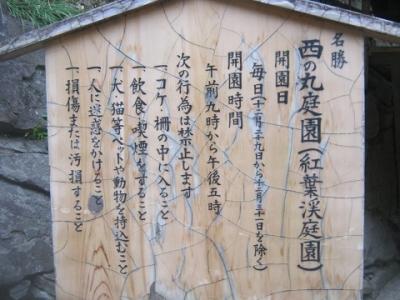 名勝
西の丸庭園(紅葉渓庭園)
開園日
毎日(十二月二十九日から十二月三十一日を除く)
開園時間
午前九時から午後五時
次の行為は禁止します
一、コケ、柵の中に入ること
一、飲食・喫煙をすること
一、犬・猫等ペットや動物を持込むこと
一、人に迷惑をかけること
一、損傷または汚損すること